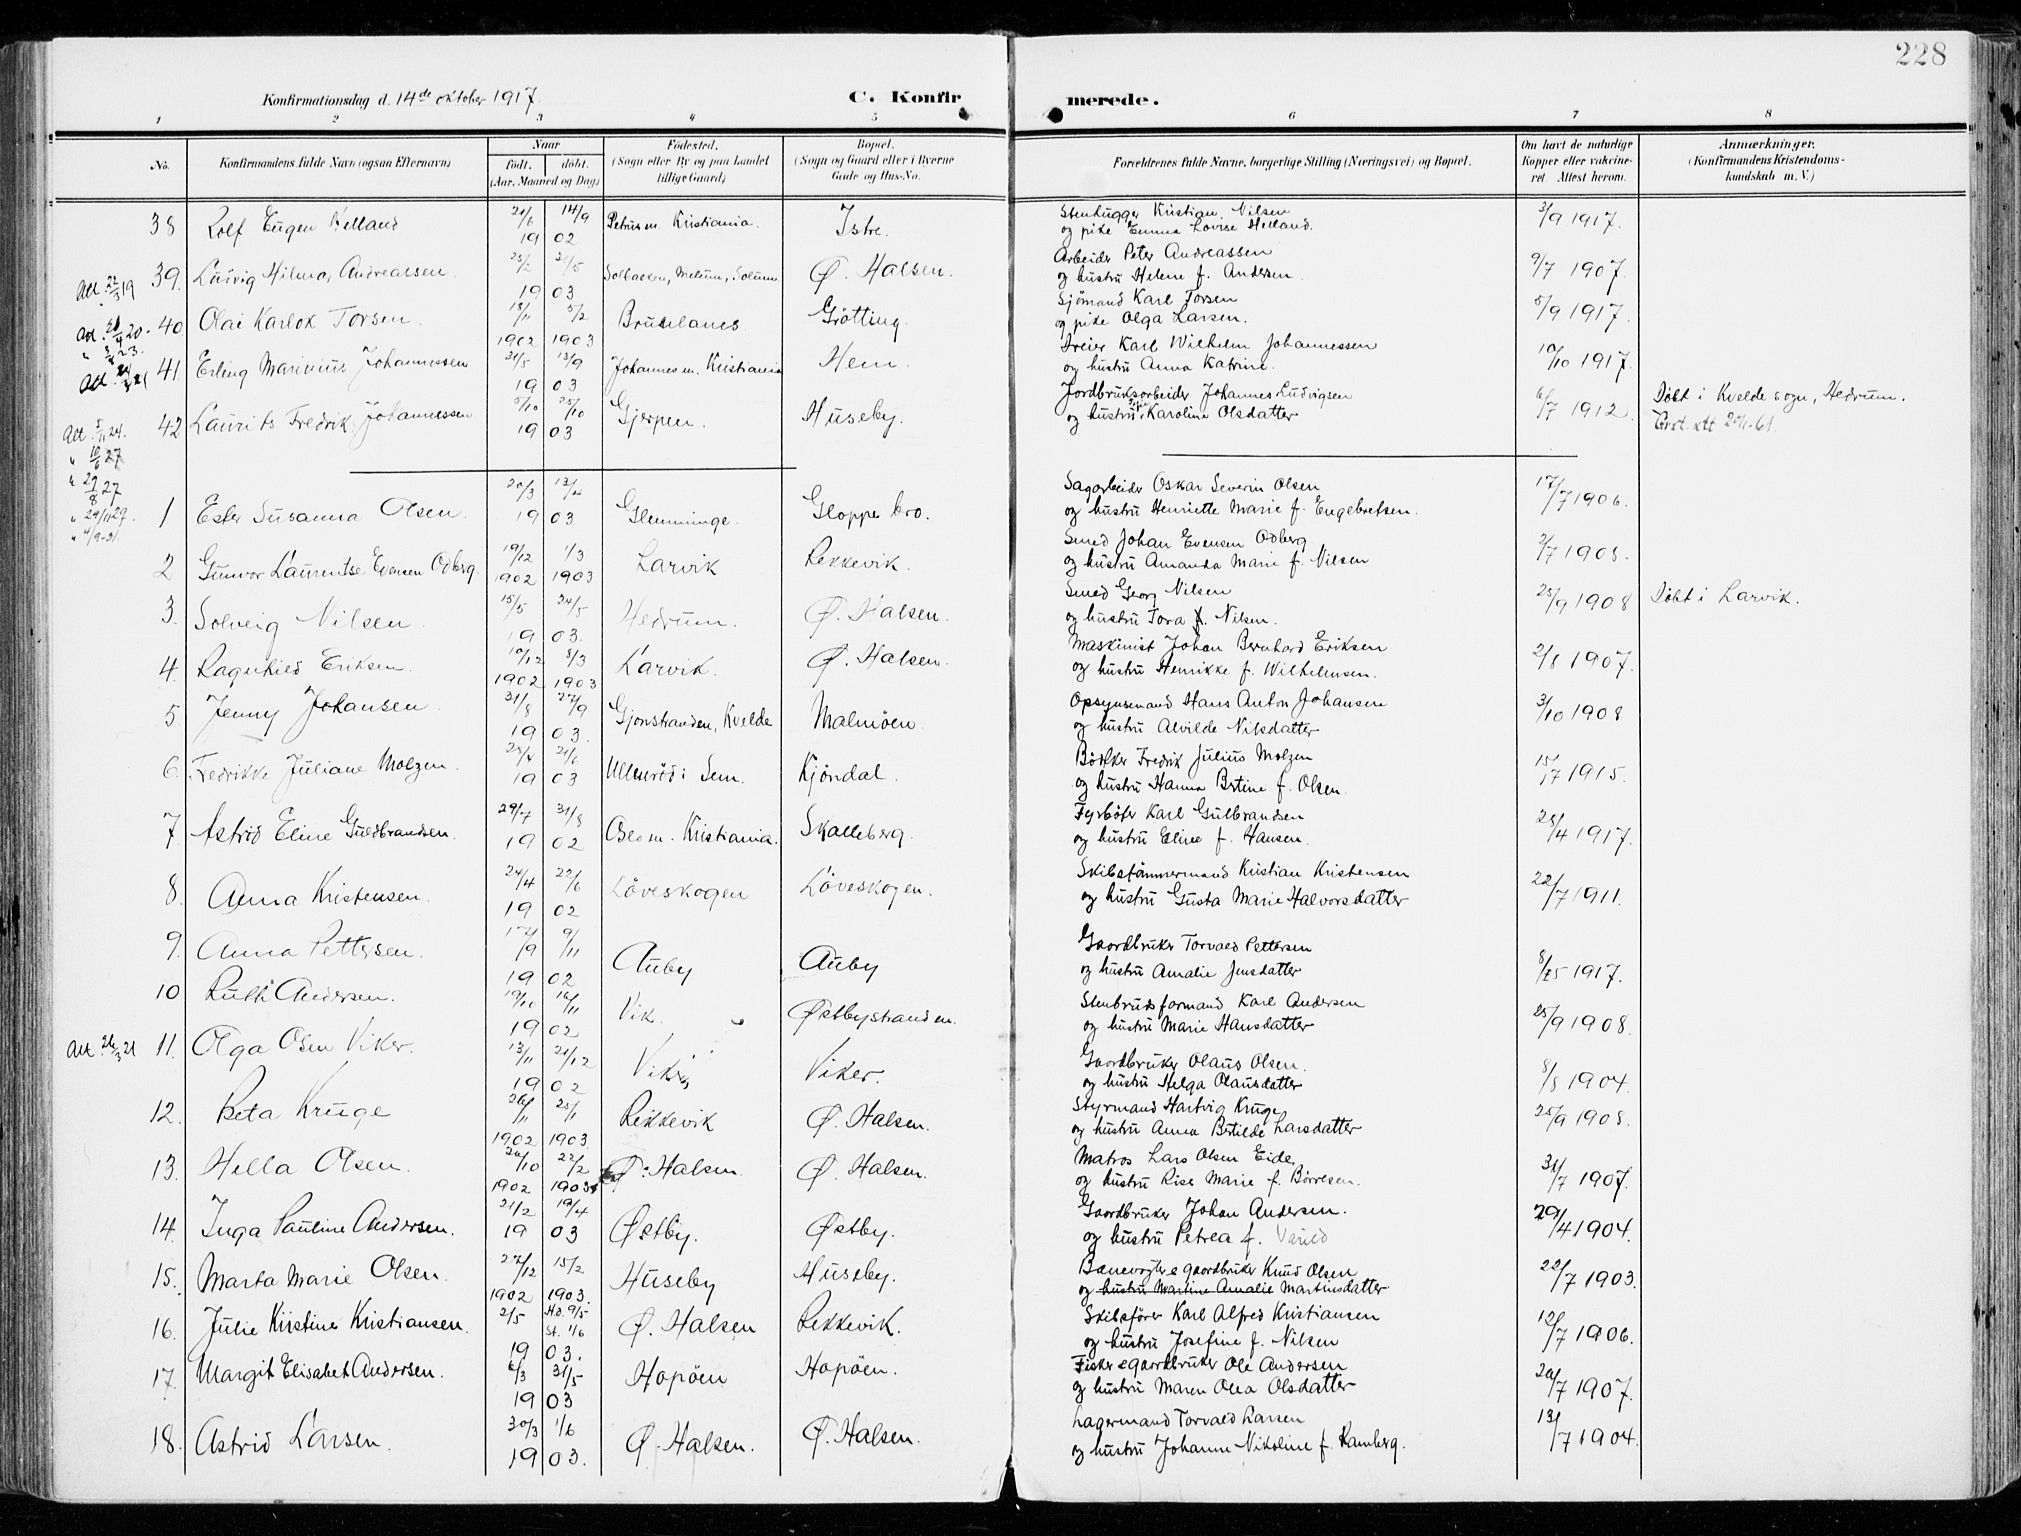 228
Konfirmationsdag d. 14de oktober 1917.
C. Konfirmerede.
1 2 3 4 5 6 7 8
No. Konfirmandens fulde Navn (ogsaa Efternavn) Naar født. døbt. (Aar, Maaned og Dag) Fødested. (Sogn eller By og paa Landet tillige Gaard) Bopæl. (Sogn og Gaard eller i Byerne Gade og Hus-No. Forældrenes fulde Navne, borgerlige Stilling (Næringsvei) og Bopæl. Om havt de naturlige Kopper eller vaccineret. Attest herom. Anmærkninger. (Konfirmandens Kristendomskundskab m. V.)
38 Rolf Eugen Helland 21/6 14/9 1902 Petrus m. Kristiania. Istre. Stenhugger Kristian Nilsen og pike Emma Lovise Helland. 3/9 1917.
Att. 22/3 19 39. Ludvig Hilmar Andreassen. 25/2 21/5 1903 Solbacken, Melum, Solum Ø. Halsen. Arbeider Peter Andreassen og hustru Helene f. Andersen 9/7 1907.
40 Olai Karlot Torsen. 18/11 5/2 1902 1903 Brunlanes Grötting. Sjömand Karl Torsen og pike Olga Larsen. 5/9 1917.
41. Erling Marinius Johannessen 31/5 13/9 1903 Johannes m. Kristiania Hem. Dreier Karl Wilhelm Johannessen og hustru Anna Katrine. 10/10 1917.
42 Laurits Fredrik Johannessen 5/10 25/10 1903 Gjerpen. Huseby. Jordbruksarbeider Johannes Ludvigsen og hustru Karoline Olsdatter 6/7 1912. Döbt i Kvelde sogn, Hedrum.
Att. 5/1 24.
" 10/6 27
" 29/8 27
" 29/11 29.
" 4/9-31.
1 Ester Susanna Olsen. 20/3 13/4 1903 Glemminge. Gloppe bro. Sagarbeider Oskar Severin Olsen og hustru Henriette Marie f. Engebretsen. 17/7 1906.
2 Gunvor Laurentse Evensen Odberg. 19/12 1/3 1902 1903 Larvik Rekkevik. Smed Johan Evensen Odberg og hustru Amanda Marie f. Nilsen 2/7 1908.
3. Solveig Nilsen. 15/5 24/5 1903. Hedrum. Ø. Halsen. Smed Georg Nilsen og hustru Tora f. Nilsen. 25/9 1908 Döbt i Larvik.
4. Ragnhild Eriksen. 10/12 8/3 1902 1903 Larvik. Ø. Halsen. Maskinist Johan Bernhard Eriksen og hustru Henrikke f. Wilhelmsen. 2/8 1907.
5 Jenny Johansen 31/8 27/9 1903. Gjonstranden, Kvelde Malmöen. Opsynsmand Hans Anton Johansen og hustru Alvilde Nilsdatter 3/10 1908
6. Fredrikke Juliane Molzen. 25/4 21/6 1903 Ullenröd i Sem. Kjöndal. Bödker Fredrik Julius Molzen og hustru Hanna Bertine f. Olsen. 15/7 1915.
7. Astrid Eline Guldbrandsen. 29/7 31/8 1902 Oslo m. Kristiania. Skalleberg. Fyrböter Karl Gulbrandsen og hustru Eline f. Hansen. 25/4 1917.
8. Anna Kristensen. 24/4 22/6 1902 Löveskogen Löveskogen. Skibstömmermand Kristian Kristensen og hustru Gusta Marie Halvorsdatter 22/7 1911.
9. Anna Pettersen. 17/9 9/11 1902 Auby Auby Gaardbruker Torvald Pettersen og hustru Amalie Jensdatter 8/25 1917.
10 Ruth Andersen. 19/10 16/11 1902 Vik. Østbystranden. Stenbrudsformand Karl Andersen og hustru Marie Hansdatter 25/9 1908.
Att. 26/3 21 11. Olga Olsen Viker. 13/11 21/12 1902 Viker Viker. Gaardbruker Olaus Olsen. og hustru Helga Olausdatter 8/8 1904.
12. Beta Kruge 26/11 25/1 1902 1903. Rekkevik Ø. Halsen. Styrmand Hartvig Kruge og hustru Anna Betilde Larsdatter 25/9 1908.
13. Hella Olsen. 20/10 22/2 1902 1903 Ø. Halsen. Ø. Halsen. Matros Lars Olsen Eide, og hustru Rise Marie f. Börresen. 31/7 1907.
14. Inga Pauline Andersen. 21/2 19/4 1903 Østby. Østby. Gaardbruker Johan Andersen. og hustru Petrea f. 29/4 1904.
15. Marta Marie Olsen. 27/12 15/2 1902 1903. Huseby Huseby. Banevogter & gaardbruker Knud Olsen og hustru Martine Amalie Martinsdatter 22/7 1903.
16. Julie Kristine Kristiansen. 2/5 Hd. 9/5 St. 1/6 1903. Ø. Halsen Rekkevik. Skibsförer Karl Alfred Kristiansen og hustru Josefine f. Nilsen 12/7 1906.
17. Margit Elisabet Andersen. 6/3 31/5 1903 Hopöen Hopöen. Fisker & gaardbruker Ole Andersen og hustru Maren Olea Olsdatter 20/7 1907.
18. Astrid Larsen. 30/3 1/6 1903. Ø. Halsen. Ø. Halsen. Lagermand Torvald Larsen og hustru Johanne Nikoline f. Ramberg. 13/7 1904.